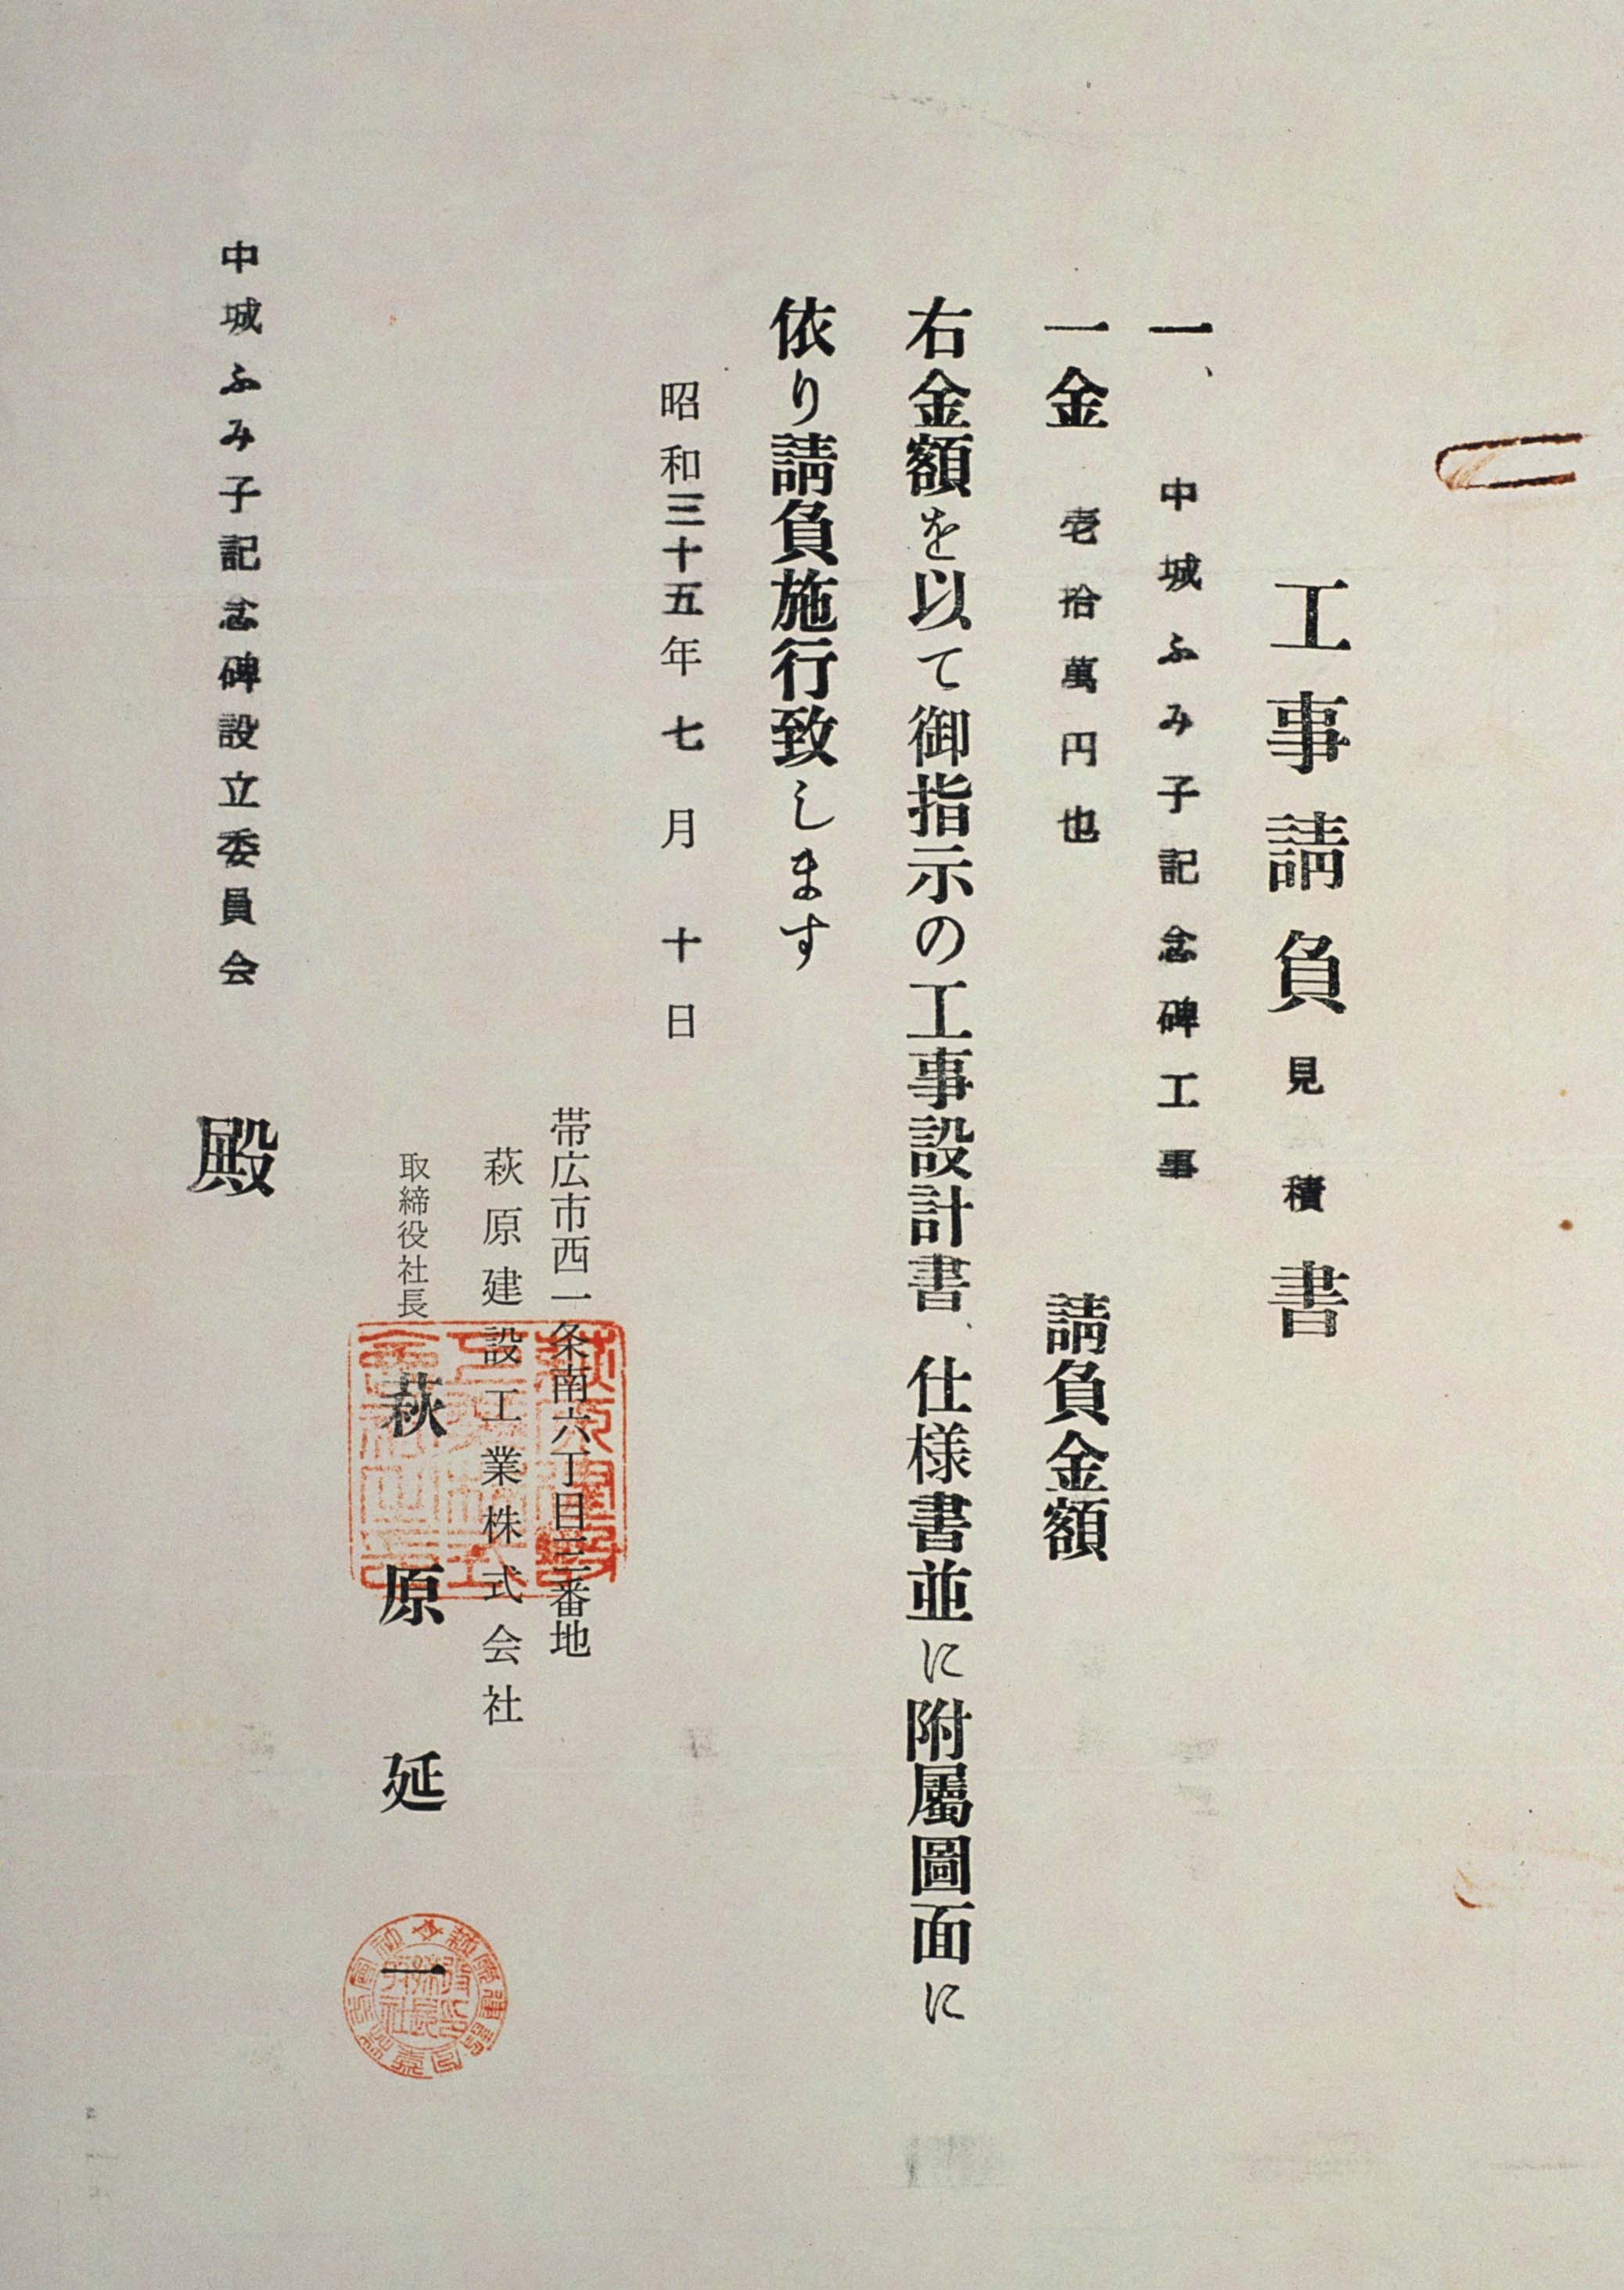 工事請負見積書
一、中城ふみ子記念碑工事
一金 壱拾萬円也 請負金額
右金額を以て御指示の工事設計書、仕様書並に附屬圖面に
依り請負施行致します
昭和三十五年七月十日
帯広市西一条南六丁目三番地
萩原建設工業株式会社
取締役社長 萩原延一
中城ふみ子記念碑設立委員会 殿